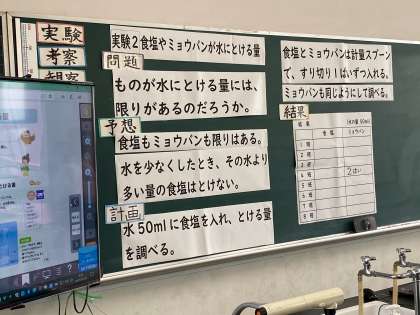 実験
考察
観察
実験２食塩やミョウバンが水にとける量
問題
ものが水にとける量には、
限りがあるのだろうか。
予想
食塩もミョウバンも限りはある。
水を少なくしたとき、その水より
多い量の食塩はとけない。
計画
水50mlに食塩を入れ、とける量
を調べる。
食塩とミョウバンは計量スプーン
で、すり切り１はいずつ入れる。
ミョウバンも同じようにして調べる。
結果
結果 水の量 50ml
食塩 ミョウバン
1班
2班
3班
4班 2はい
5班
6班
7班
8班